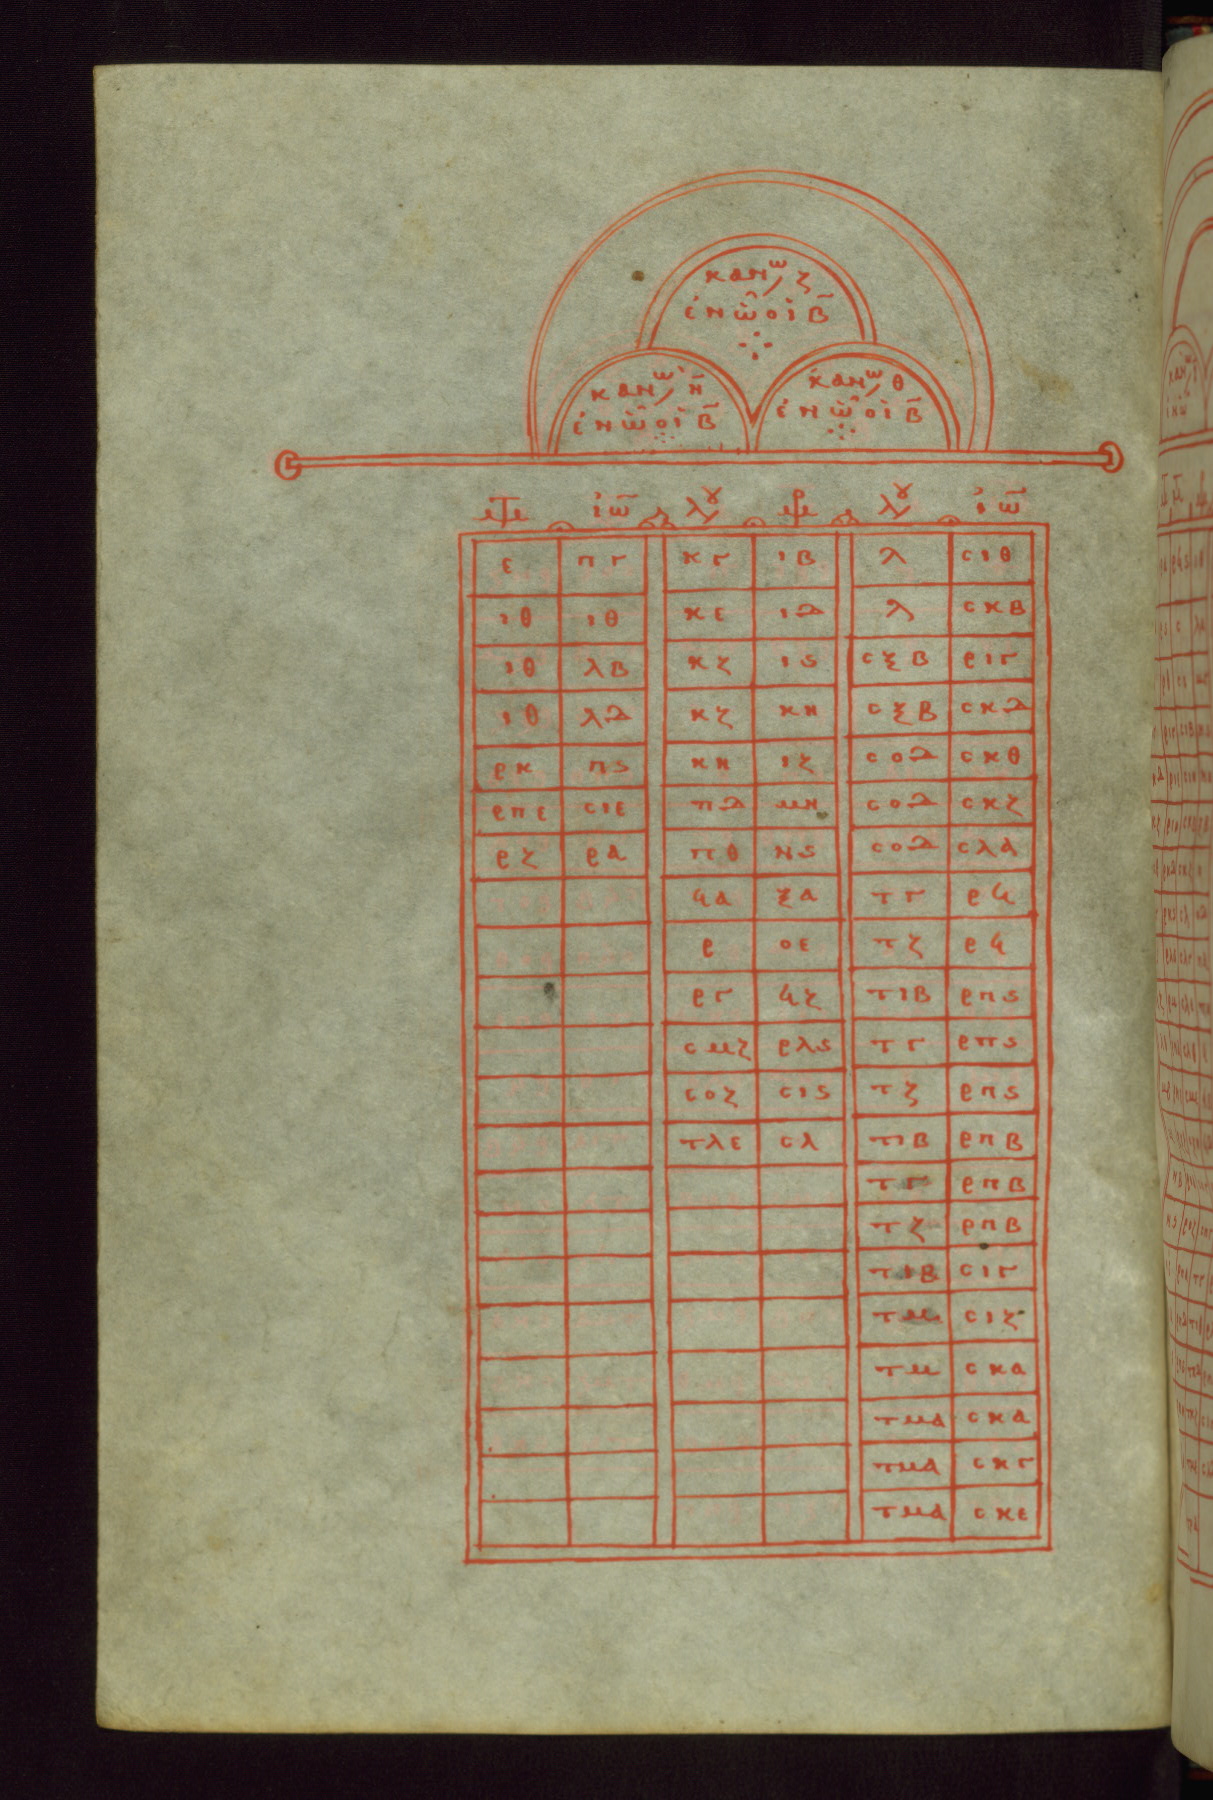 κανω ζ
ἐν ὧ οἱ β
κανω η
ἐν ὧ οἱ β
κανω θ
ἐν ὧ οἱ β
ἰω λου λου ἰω
ε πγ κγ ιβ λ σιθ
ιθ ιθ κε ιδ λ σκβ
ιθ λβ κζ ις σξβ ριγ
ιθ λδ κζ κη σξβ σκδ
ρκ πς κη ιζ σοδ σκθ
ρπε σιε πδ μη σοδ σκζ
ρζ ρα πθ νς σοδ σλα
ϥα ξα τγ ρϥ
ρ οε τζ ρϥ
ργ ϥζ τιβ ρπς
σμζ ρλς τγ ρπς
σοζ σις τζ ρπς
τλε σλ τιβ ρπβ
τγ ρπβ
τζ ρπβ
τιβ σιγ
τμ σιζ
τμ σκα
τμα σκα
τμα σκγ
τμα σκε